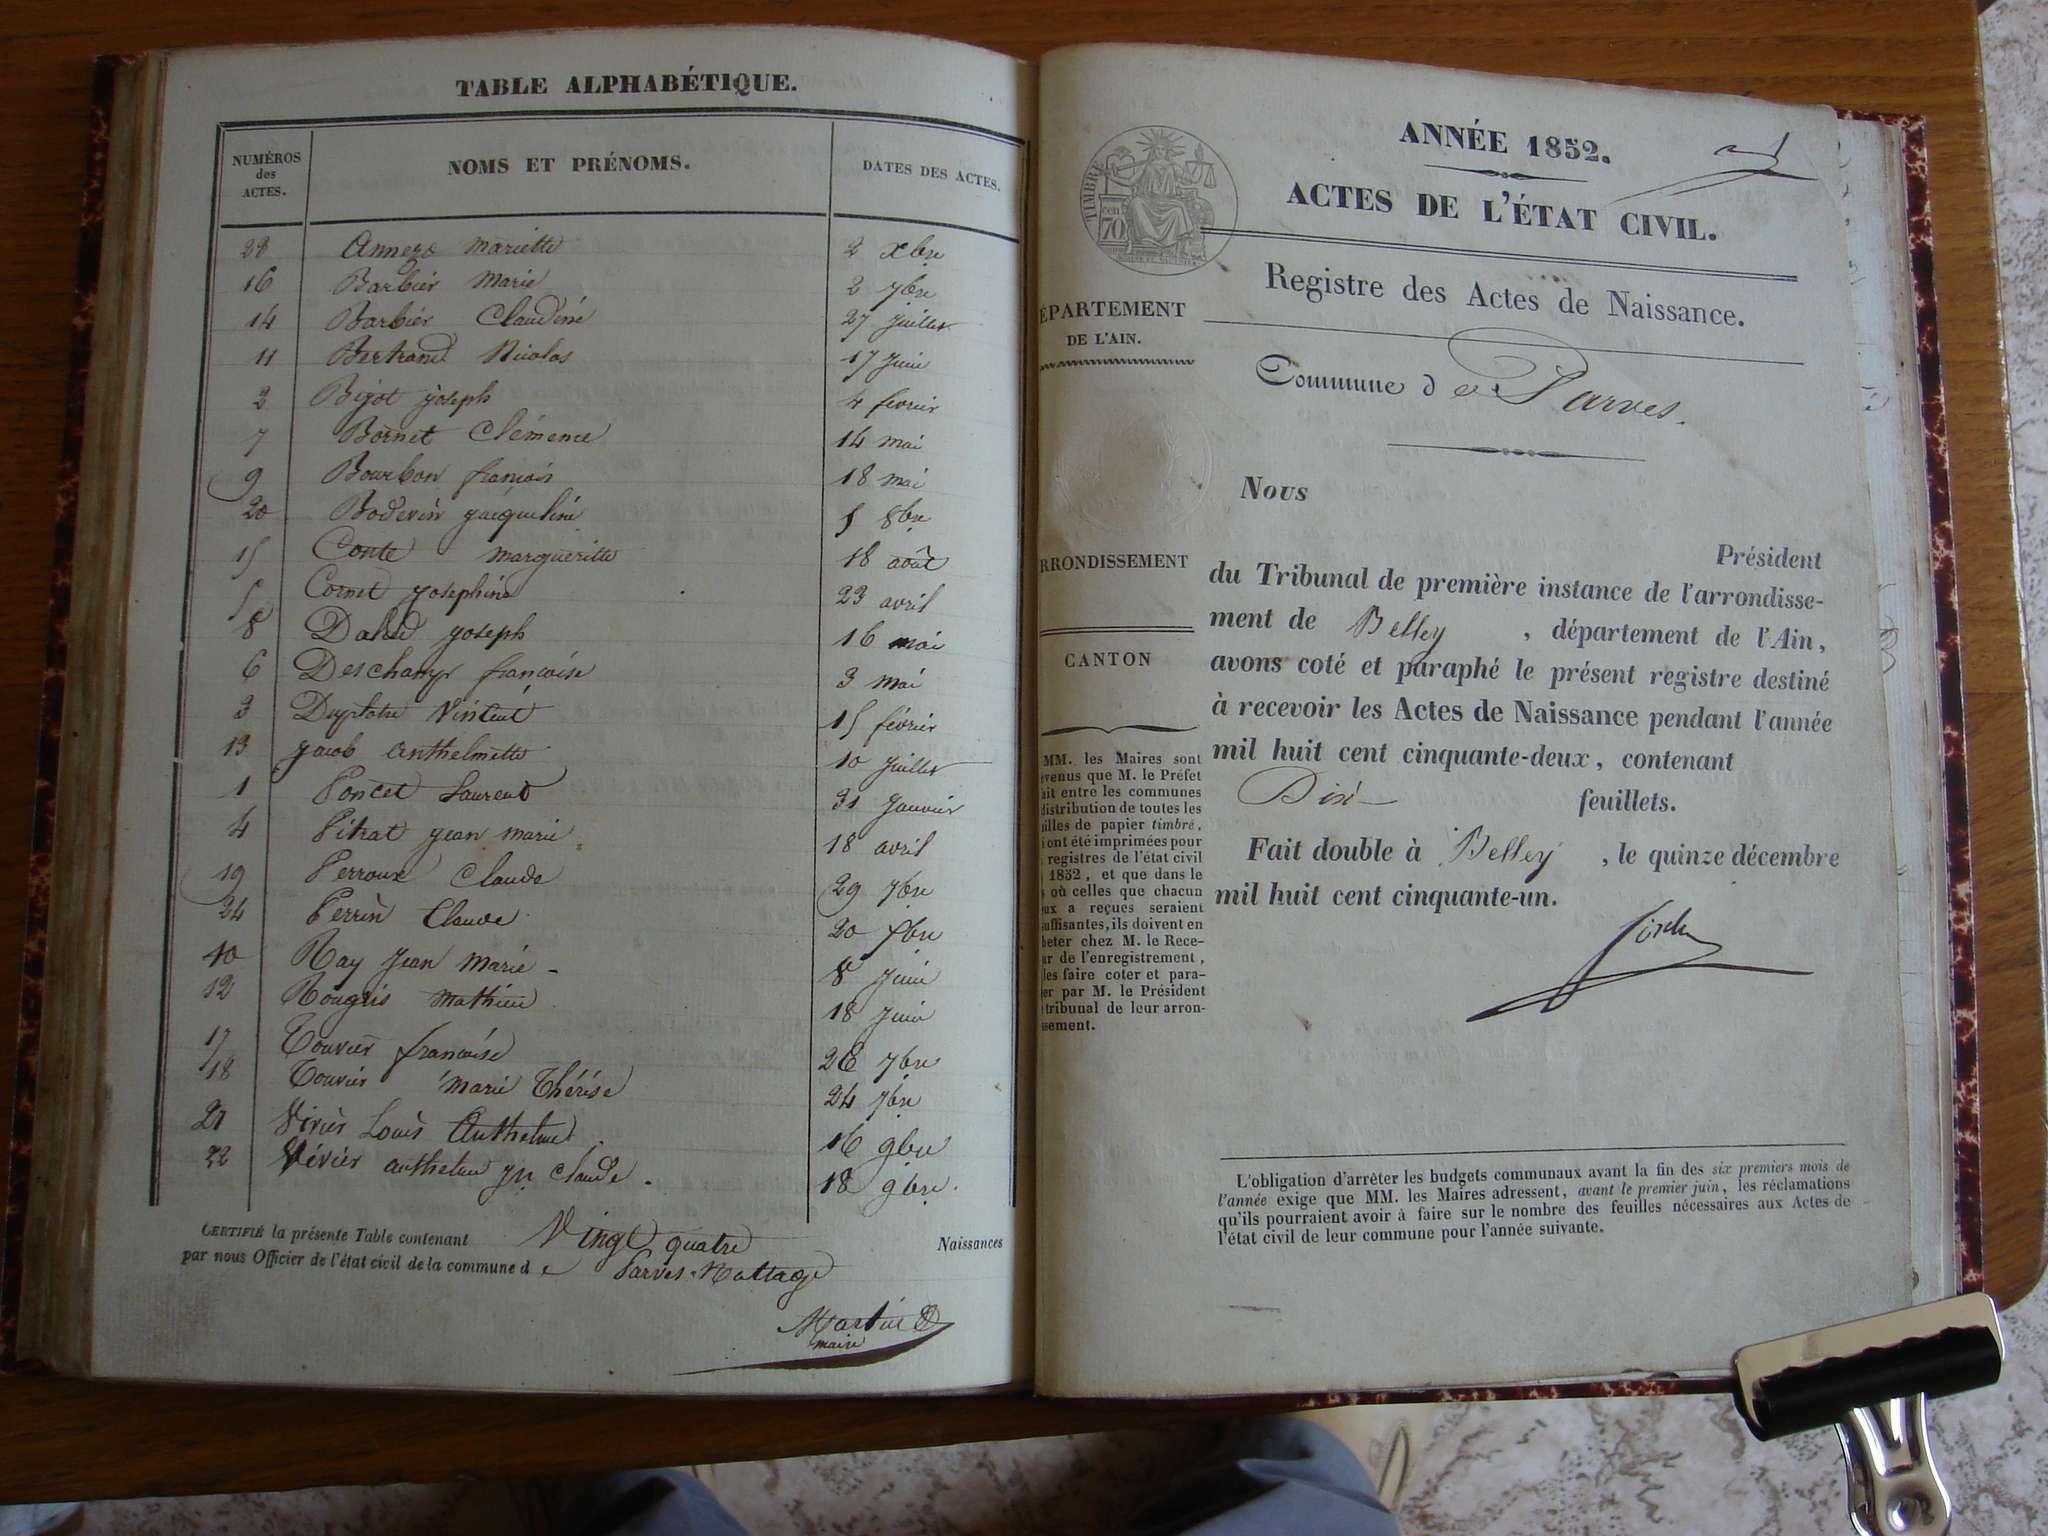 TABLE ALPHABÉTIQUE.
NUMÉROS des ACTES. NOMS ET PRÉNOMS. DATES DES ACTES.
Mariette 2 Xbre
16 Barbier Marie 2 7bre
14 Barbier Claudine 27 Juillet
11 Bertrand Nicolas 17 Juin
2 Bigot Joseph 4 fevrier
7 Bornet Clémence 14 mai
9 Bourbon françois 18 mai
20 Boderin Jacqueline 5 8bre
15 Conte Margueritte 18 août
5 Cornet Josephine 23 avril
8 David Joseph 16 mai
6 Deschamps françoise 3 mai
3 Vincent 15 février
13 Jacob Anthelmette 10 Juillet
1 Poncet Laurent 31 Janvier
4 Pitrat Jean Marie 18 avril
19 Perroux Claude 29 7bre
24 Perrin Claude 20
10 Ray Jean Marie 8 Juin
12 Rougris Mathieu 18 Juin
17 Touvier françoise 26 7bre
18 Touvier Marie Thérèse 24 7bre
21 Vivier Louis Anthelme 16 9bre
22 Vivier Anthelme Jn Claude. 18 9bre.
CERTIFIÉ la présente Table contenant Vingt quatre Naissances
par nous Officier de l'état civil de la commune de Parves-Nattage
Martin
maire
ANNÉE 1852.
ACTES DE L'ÉTAT CIVIL.
TIMBRE
70 cen
Registre des Actes de Naissance.
ÉPARTEMENT
DE L'AIN.
Commune de Parves.
Nous
Président
RRONDISSEMENT
du Tribunal de première instance de l'arrondisse-
ment de Belley, département de l'Ain,
CANTON
avons coté et paraphé le présent registre destiné
à recevoir les Actes de Naissance pendant l'année
mil huit cent cinquante-deux, contenant
Dix feuillets.
Fait double à Belley, le quinze décembre
mil huit cent cinquante-un.
MM. les Maires sont
venus que M. le Préfet
ait entre les communes
distribution de toutes les
illes de papier timbré,
i ont été imprimées pour
registres de l'état civil
1852, et que dans le
s où celles que chacun
eux a reçues seraient
suffisantes, ils doivent en
heter chez M. le Rece-
ur de l'enregistrement,
les faire coter et para-
er par M. le Président
tribunal de leur arron-
ssement.
L'obligation d'arrêter les budgets communaux avant la fin des six premiers mois de
l'année exige que MM. les Maires adressent, avant le premier juin, les réclamations
qu'ils pourraient avoir à faire sur le nombre des feuilles nécessaires aux Actes de
l'état civil de leur commune pour l'année suivante.